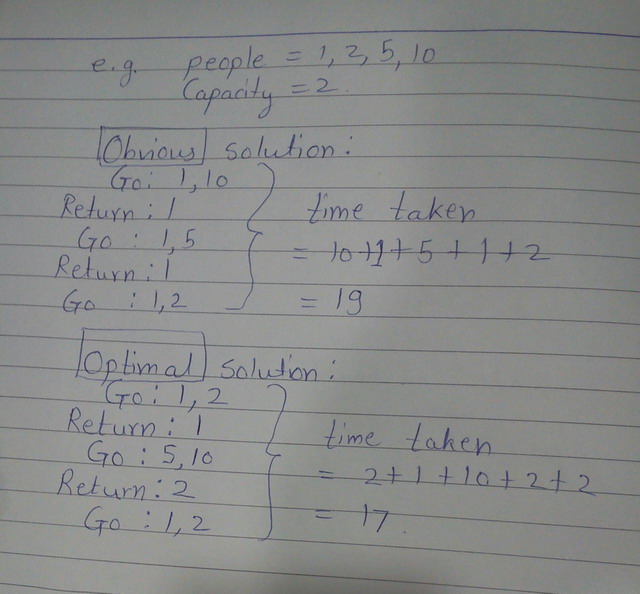 e.g. people = 1, 2, 5, 10
Capacity = 2.
Obvious solution:
Go: 1, 10
Return: 1
Go: 1, 5
Return: 1
Go: 1, 2
time taken
= 10+1+5+1+2
= 19
Optimal solution:
Go: 1, 2
Return: 1
Go: 5, 10
Return: 2
Go: 1, 2
time taken
= 2+1+10+2+2
= 17.